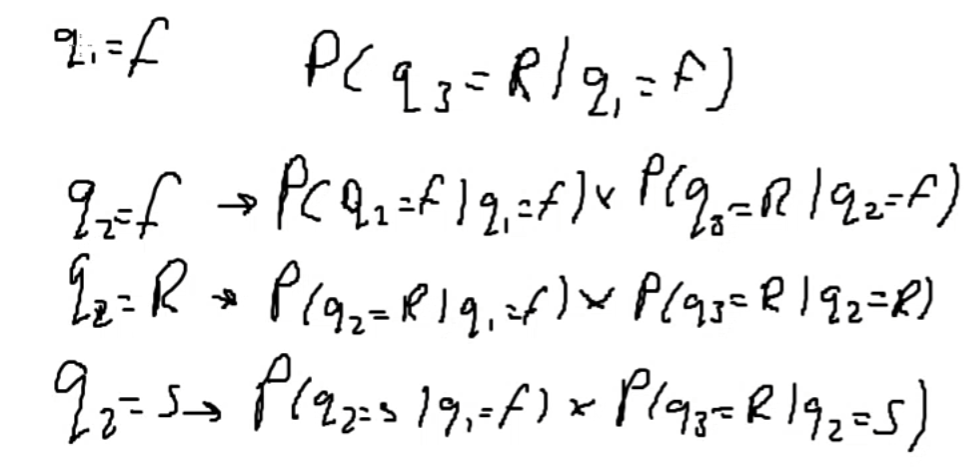 q₁=f P(q₃=R|q₁=f)
q₂=f → P(q₂=f|q₁=f)× P(q₃=R|q₂=f)
q₂=R → P(q₂=R|q₁=f)× P(q₃=R|q₂=R)
q₂=s → P(q₂=s|q₁=f)× P(q₃=R|q₂=s)